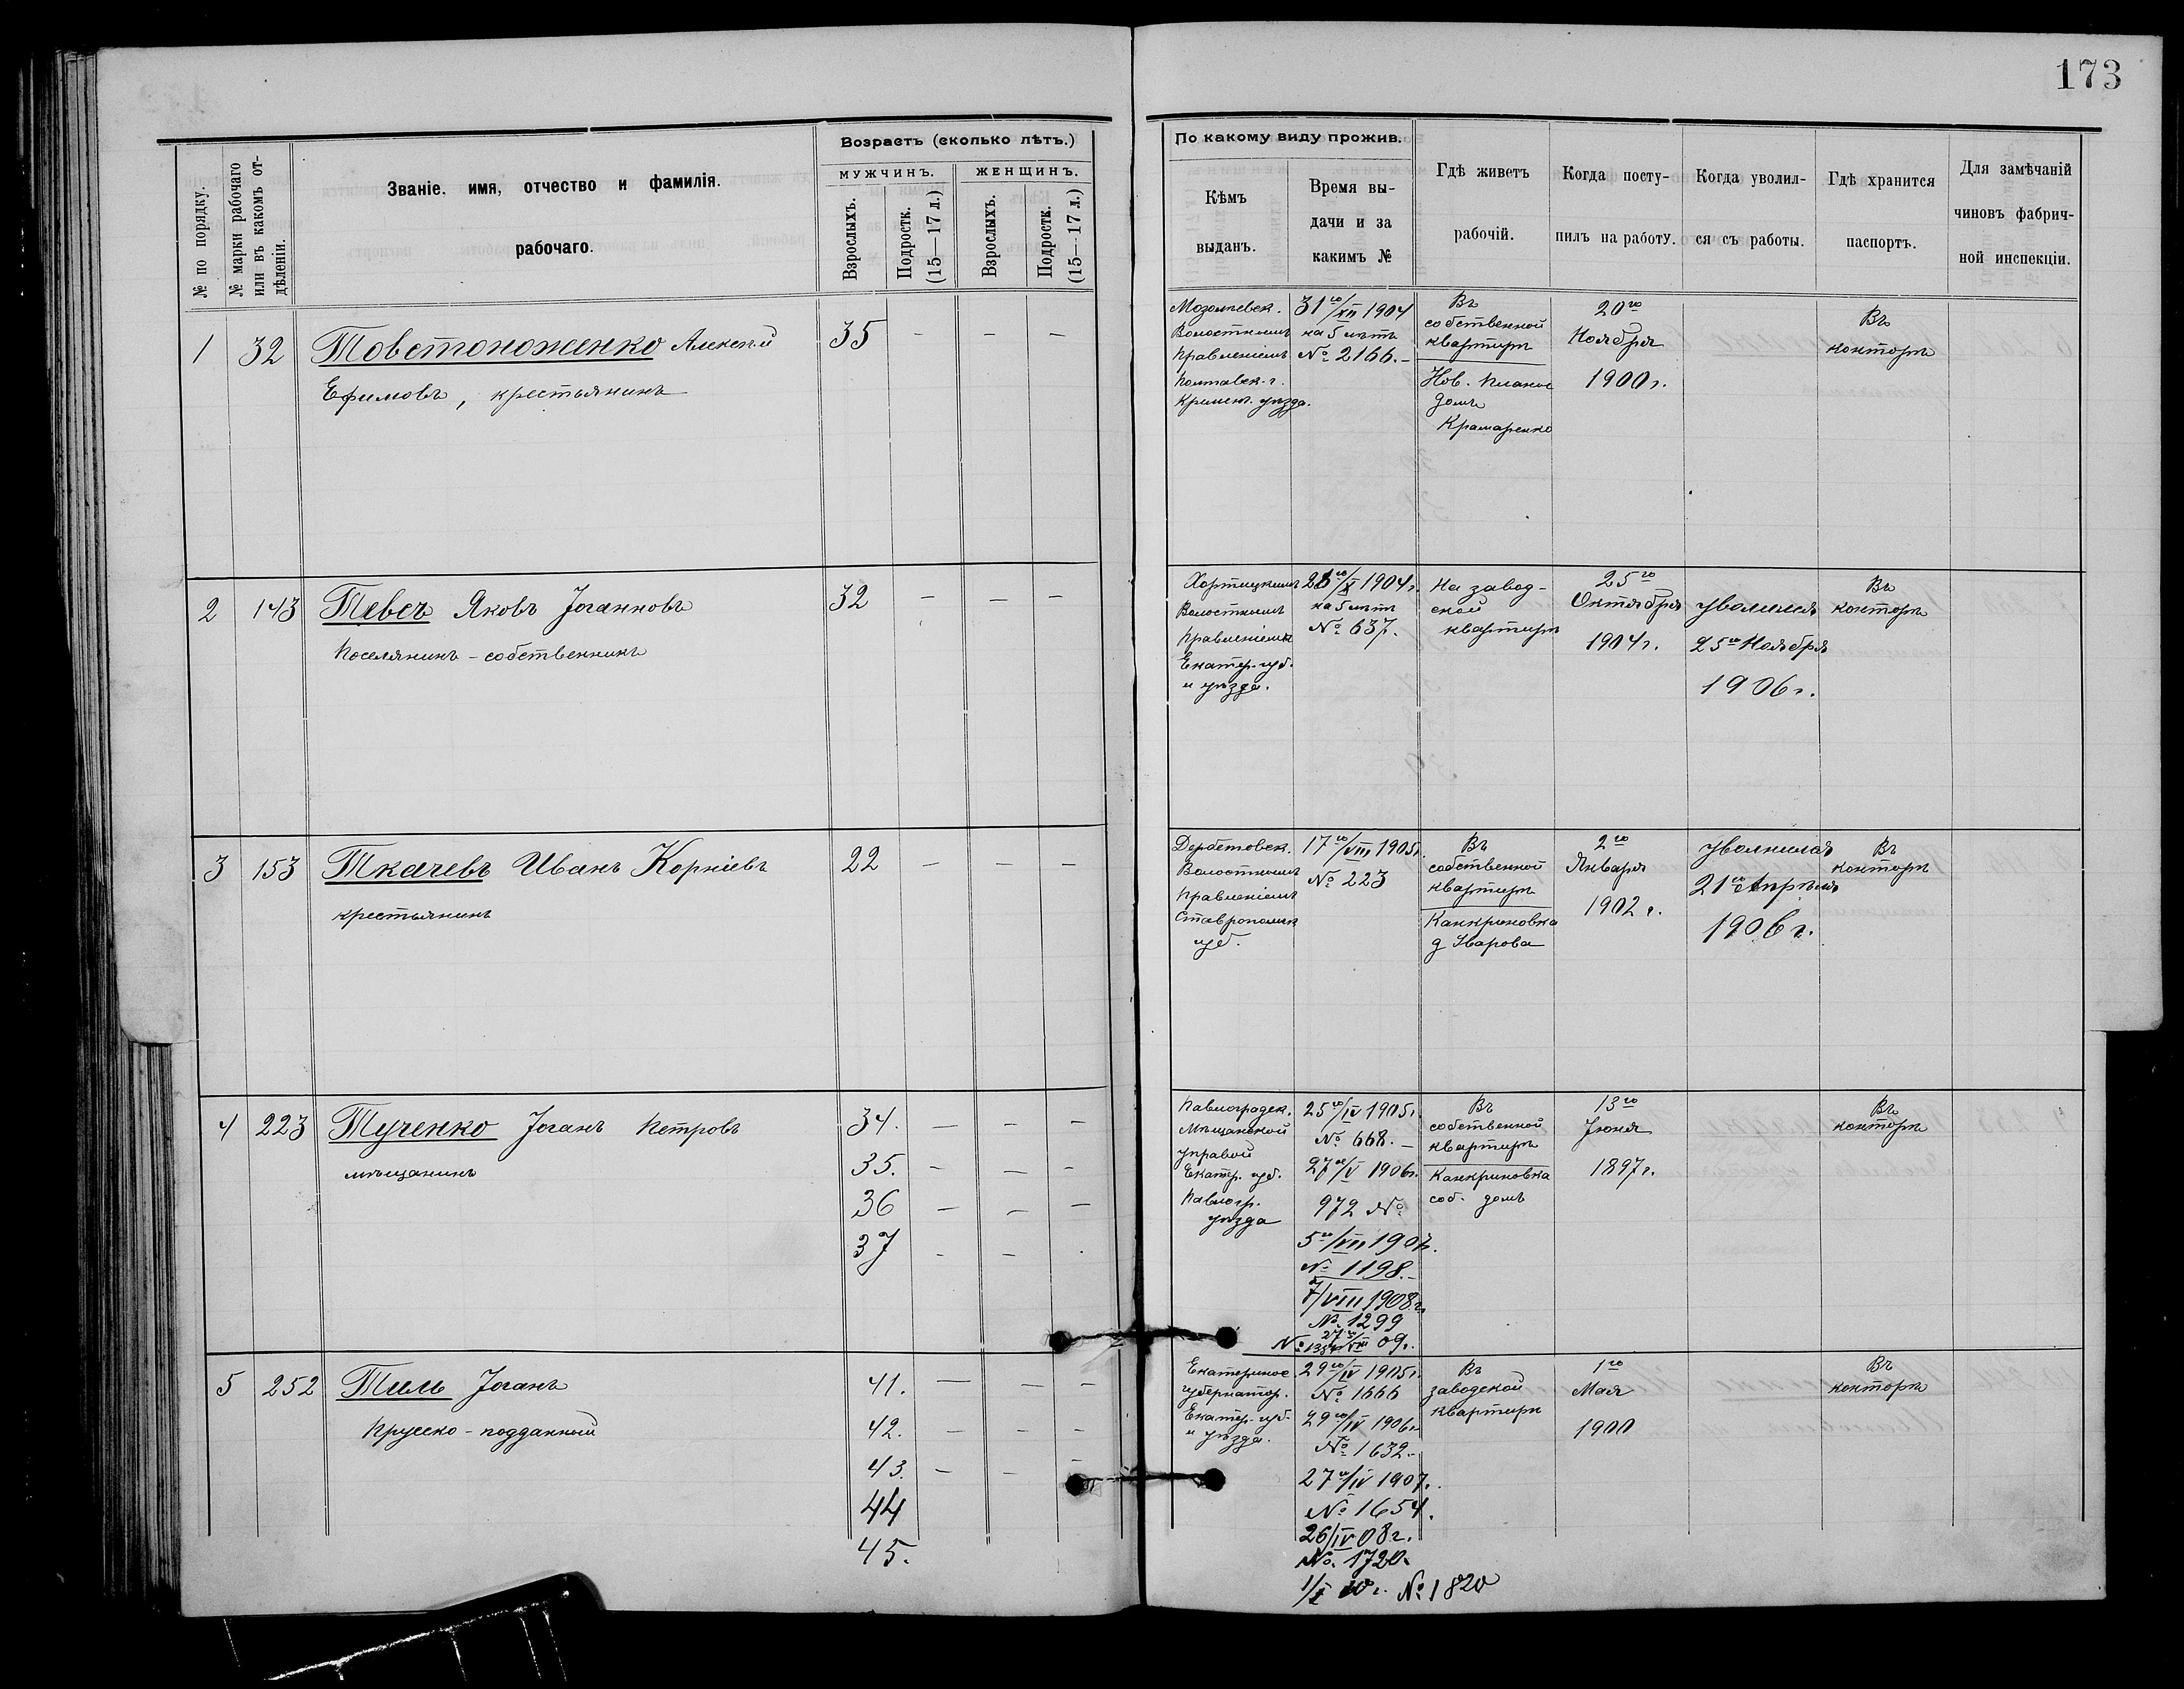 173
№ по порядку.
№ марки рабочаго
или въ какомъ от-
дѣленіи.
Званіе, имя, отчество и фамилія
рабочаго.
Возрастъ (сколько лѣтъ.)
МУЖЧИНЪ.
ЖЕНЩИНЪ.
Взрослыхъ.
Подростк.
(15—17 л.)
Взрослыхъ.
Подростк.
(15—17 л.)
По какому виду прожив.
Кѣмъ
выданъ.
Время вы-
дачи и за
какимъ №
Гдѣ живетъ
рабочій.
Когда посту-
пилъ на работу.
Когда уволил-
ся съ работы.
Гдѣ хранится
паспортъ.
Для замѣчаній
чиновъ фабрич-
ной инспекціи.
1 32 Товстоноженко Алексѣй 35 — — —
Ефимовъ, крестьянинъ
Мозолѣевск.
Волостнымъ
Правленіемъ
Полтавск. г.
Кремен. уѣзда.
31го/XII 1904
на 5 лѣтъ
№ 2166.—
Въ
собственной
квартирѣ
Нов. Планъ
домъ
Крамаренко
20го
Ноября
1900 г.
Въ
конторѣ
2 143 Тевсъ Яковъ Іоганновъ 32 — — —
Поселянинъ-собственникъ
Хортицкимъ
Волостнымъ
Правленіемъ
Екатер. губ.
и уѣзда.
го/X 1904 г.
на 5 лѣтъ
№ 637.
На завод-
ской
квартирѣ
25го
Октября
1904 г.
Уволился
25го Ноября
1906 г.
Въ
конторѣ
3 153 Ткачевъ Иванъ Корніевъ 22 — — —
крестьянинъ
Дербетовск.
Волостнымъ
Правленіемъ
Ставропольск
губ.
17го/VIII 1905 г.
№ 223
Въ
собственной
квартирѣ
Канкриновка
д Уварова
2го
Января
1902 г.
Уволился
21го Апрѣля
1906 г.
Въ
конторѣ
4 223 Тученко Іоганъ Петровъ 34. — — —
мѣщанинъ 35. — — —
36 — — —
37 - — .
Павлоградск.
Мѣщанской
Управой
Екатер. губ.
Павлогр.
уѣзда
25го/IV 1905 г.
№ 668.—
27го/V 1906 г.
972 №
5го/VII 1907.
№ 1198.—
7/VIII 1908 г.
№ 1299
09 г.
Въ
собственной
квартирѣ
Канкриновка
соб. домъ
13го
Іюня
1897 г.
Въ
конторѣ
5 252 Тиль Іоганъ 41. — — —
Прусско-подданный 42. — — —
43. — — —
44
45.
Екатеринос.
губернатор.
Екатер. губ.
и уѣзда.
29го/IV 1905 г.
№ 1666
29го/IV 1906 г.
№ 1632.—
27го/IV 1907.
№ 1654.
26/IV 08 г.
№ 1720.
№ 1820
Въ
заводской
квартирѣ
1го
Мая
1900
Въ
конторѣ